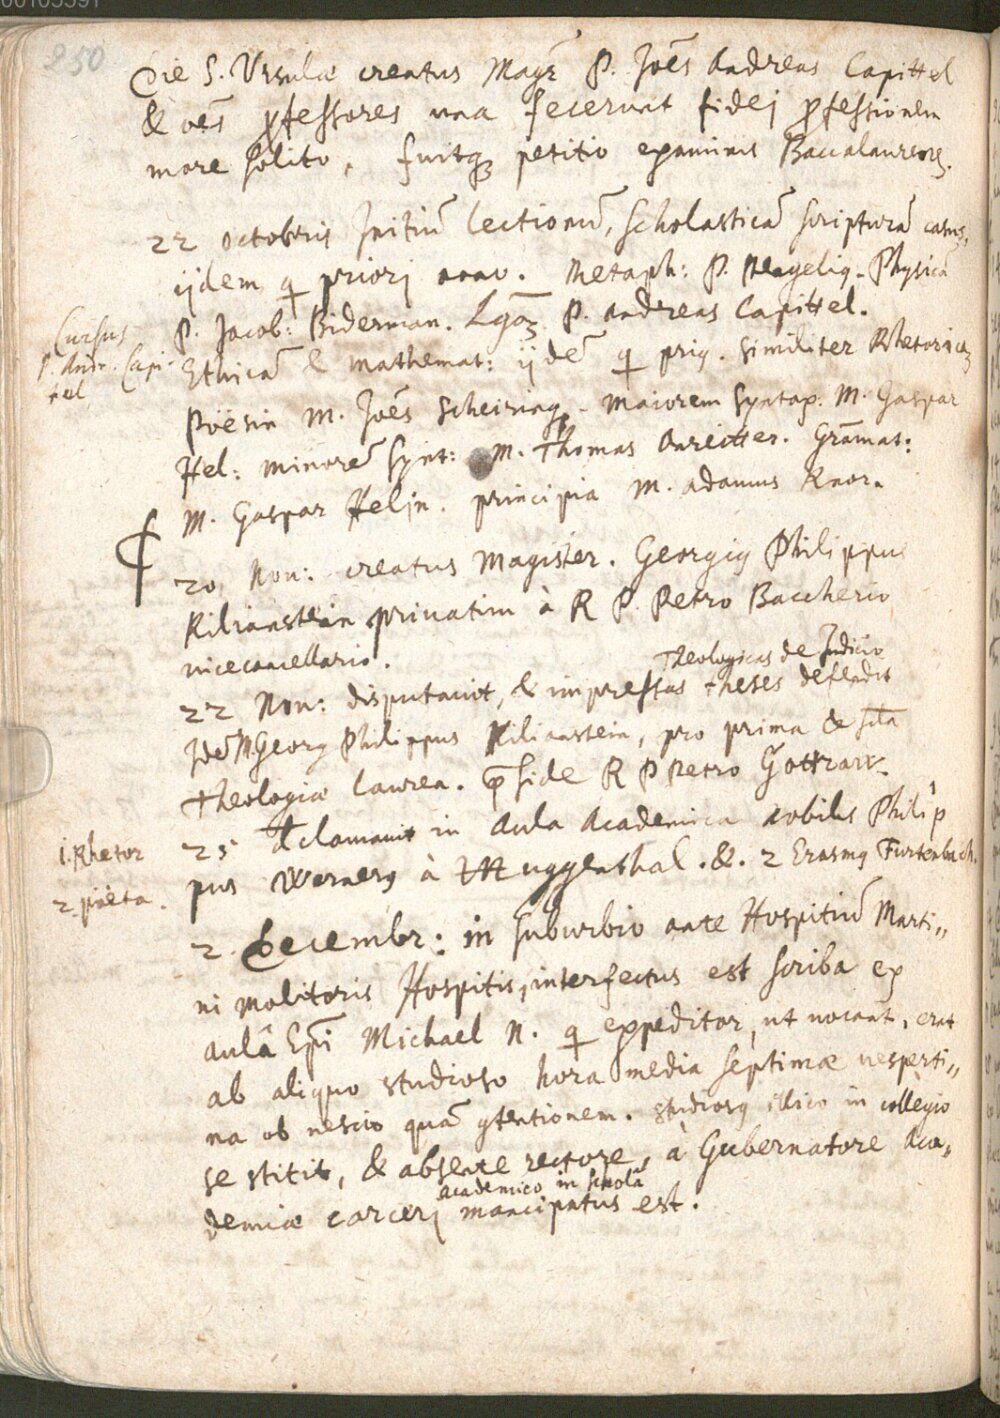 00103391
250
Die S. Ursulæ creatus Magr̄ P. Joēs Andreas Capittel
& oēs p̱fessores una fecerunt fidej p̱fessionem
more solito, fuitq̨ petitio examinis Baccalaureor.
22 octobris Initiū lectionū, scholasticā scripturā casus,
ijdem q̱ priorj anno. Metaph: P. Physicā
P. Jacob: Biderman. Lgāz P. Andreas Capittel.
Cursus
P. Andr. Capi-
tel
Ethicā & mathemat: ijdē q̱ prig. similiter Rhetoricā
Poësin M. Joēs Scheiring, Maiorem Syntax. M. Gaspar
Hel: minorē Synt: M. Thomas Anreitter. Grāmat:
M. Gaspar Helin. principia M. Adamus Knor.
20 Nou: creatus Magister. Georgiq Philippus
Kilianstein priuatim à R P. Petro Baccherio
uicecancellario.
Theologicas de Judicio
22 Nou: disputauit, & impressas theses defendit
Idē M. Georg Philippus Kilianstein, pro prima de sctā
Theologiæ laurea. p̄side R P Petro Gottrau.
1. Rhetor
2. poëta.
25 declamauit in Aula Academica nobilis Philip
pus Wernerq à Muggenthal. &. 2 Erasmq Furtenbach.
2. Decembr: in suburbio ante Hospitiū Marti„
ni molitoris Hospitis, interfectus est scriba ex
aulâ Ep̄i Michael N. q̱ expeditor, ut uocant, erat
ab aliquo studioso hora media septimæ uesperti„
na ob nescio quā 9tentionem. studiosq illico in collegio
se stitit, & absente rectore, à Gubernatore Aca„
academico in scholâ
demiæ carcerj mancipatus est.